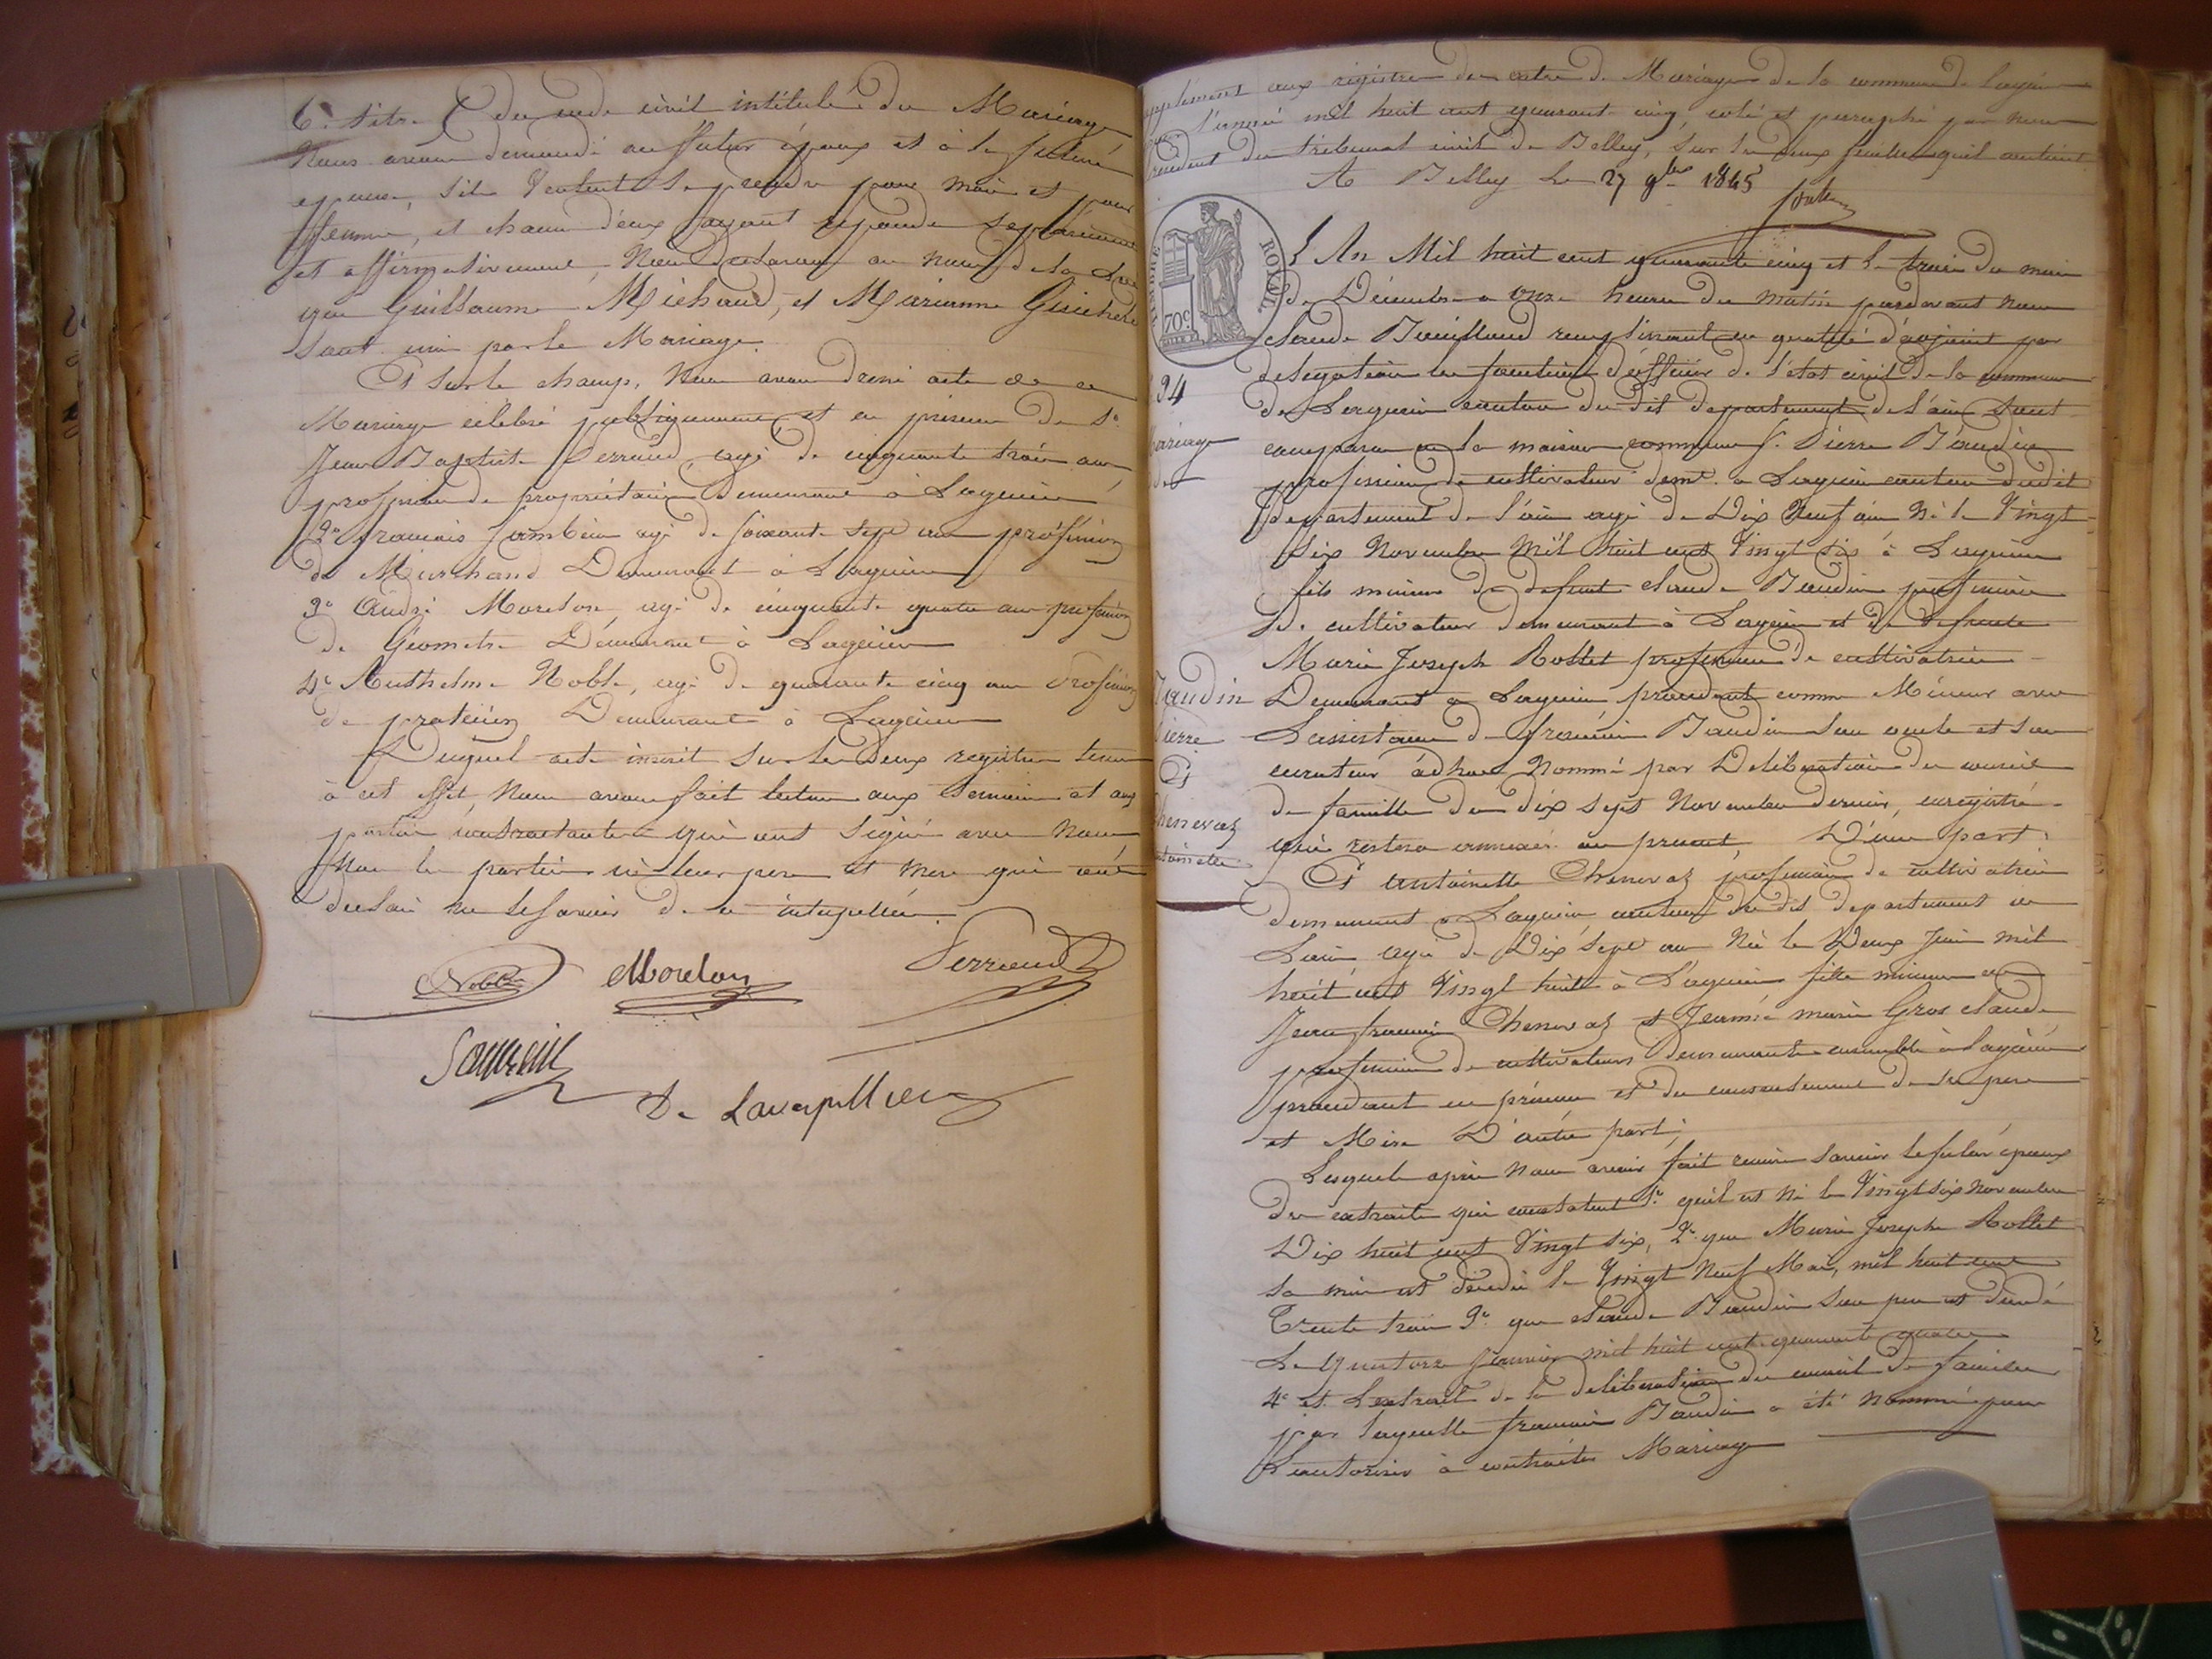 6e titre du code civil intitulé du Mariage
Nous avons demandé au futur époux et à la future
epouse, s'ils veulent se prendre pour mari et pour
femme, et chacun d'eux ayant repondu séparément
et affirmativement, Nous declarons au nom de la loi
que Guillaume Michaud, et Marianne
sont unis par le Mariage.
Et sur le champ, Nous avons dressé acte de ce
Mariage célébré publiquement et en présence de 1o
Jean Baptiste Perraud, agé de cinquante trois ans
profession de propriétaire Demeurant à Lagnieu
2o francois agé de soixante sept ans profession
de Marchand Demeurant à Lagnieu
3o André Morelon, agé de cinquante quatre ans profession
de Géometre Demeurant à Lagnieu
4e Anthelme Noble, agé de quarante cinq ans profession
de praticien Demeurant à Lagnieu
Duquel acte inscrit sur les deux registres tenus
à cet effet, Nous avons fait lecture aux temoins et aux
parties contractantes qui ont signé avec Nous
Non les parties ni leur pere et mere qui ont
declaré ne le savoir de ce interpellés.
Noble Morelon Perraud
De
Supplément aux registres des actes de Mariages de la commune de Lagnieu
pour l'année mil huit cent quarante cinq, coté et paraphé par nous
President du tribunal civil de Belley, sur les deux feuilles qu'il contient
A Belley le 27 9bre 1845
TIMBRE ROYAL
70c
L'An Mil huit cent quarante cinq et le trois du mois
de Décembre a onze heures du matin pardevant nous
claude remplissant en qualité d'adjoint par
delegation les fonctions d'officier de l'état civil de la commune
94
de Lagnieu canton du dit departement de l'ain sont
Mariage
comparu en la maison commune Sr. Pierre Baudin
de
profession de cultivateur demt. a Lagnieu canton dudit
departement de l'ain agé de Dix Neuf ans Né le Vingt
six Novembre Mil huit cent Vingt six à Lagnieu
fils mineur de defunt claude Baudin profession
de cultivateur demeurant à Lagnieu et de defunte
Marie Joseph Rollet profession de cultivatrice
Baudin
Demeurant a Lagnieu procedant comme Mineur avec
Pierre
L'assistance de francois Baudin son oncle et son
Et
curateur ad hoc Nommé par Deliberation du conseil
de famille du dix sept Novembre dernier, enregistré
Chenevaz
qui restera annexé au present, D'une part:
antoinette
Et antoinette Chenevaz profession de cultivatrice
demeurant a Lagnieu, canton du dit departement de
L'ain agé de Dix sept ans Née le Deux Juin mil
huit cent Vingt huit à Lagnieu fille mineure de
Jean francois Chenevaz et Jeanne marie Gros claude
profession de cultivateurs Demeurants ensemble à Lagnieu
procedant en présence et du consentement de ses pere
et Mere D'autre part;
Lesquels après Nous avoir fait remise savoir le futur époux
des extraits qui constatent 1o qu'il est Né le Vingt six novembre
Dix huit cent Vingt six, 2o que Marie Joseph Rollet
sa mere est décédée le Vingt Neuf Mai, mil huit cent
Trente trois 3o que claude Baudin son pere est décédé
Le quatorze Janvier mil huit cent quarante quatre
4e et L'extrait de la deliberation du conseil de famille
par laquelle francois Baudin a été Nommé pour
L'autoriser à contracter Mariage